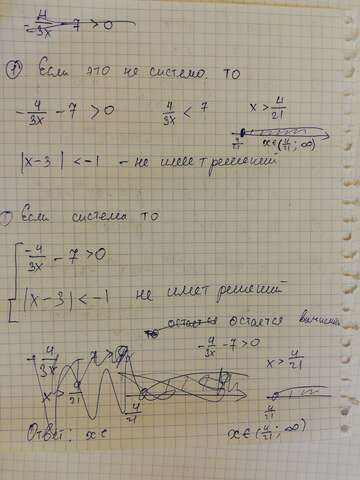 -4/3x - 7 > 0
① Если это не система. то
-4/3x - 7 > 0 4/3x < 7 x > 4/21
4/21 x ∈ (4/21; ∞)
|x-3| < -1 - не имеет решений
① Если система то
-4/3x - 7 > 0
|x-3| < -1 не имет решений
остается
-4/3x - 7 > 0
x > 4/21 x > 4/21
4/21 4/21
Ответ: x ∈ x ∈ (4/21; ∞)